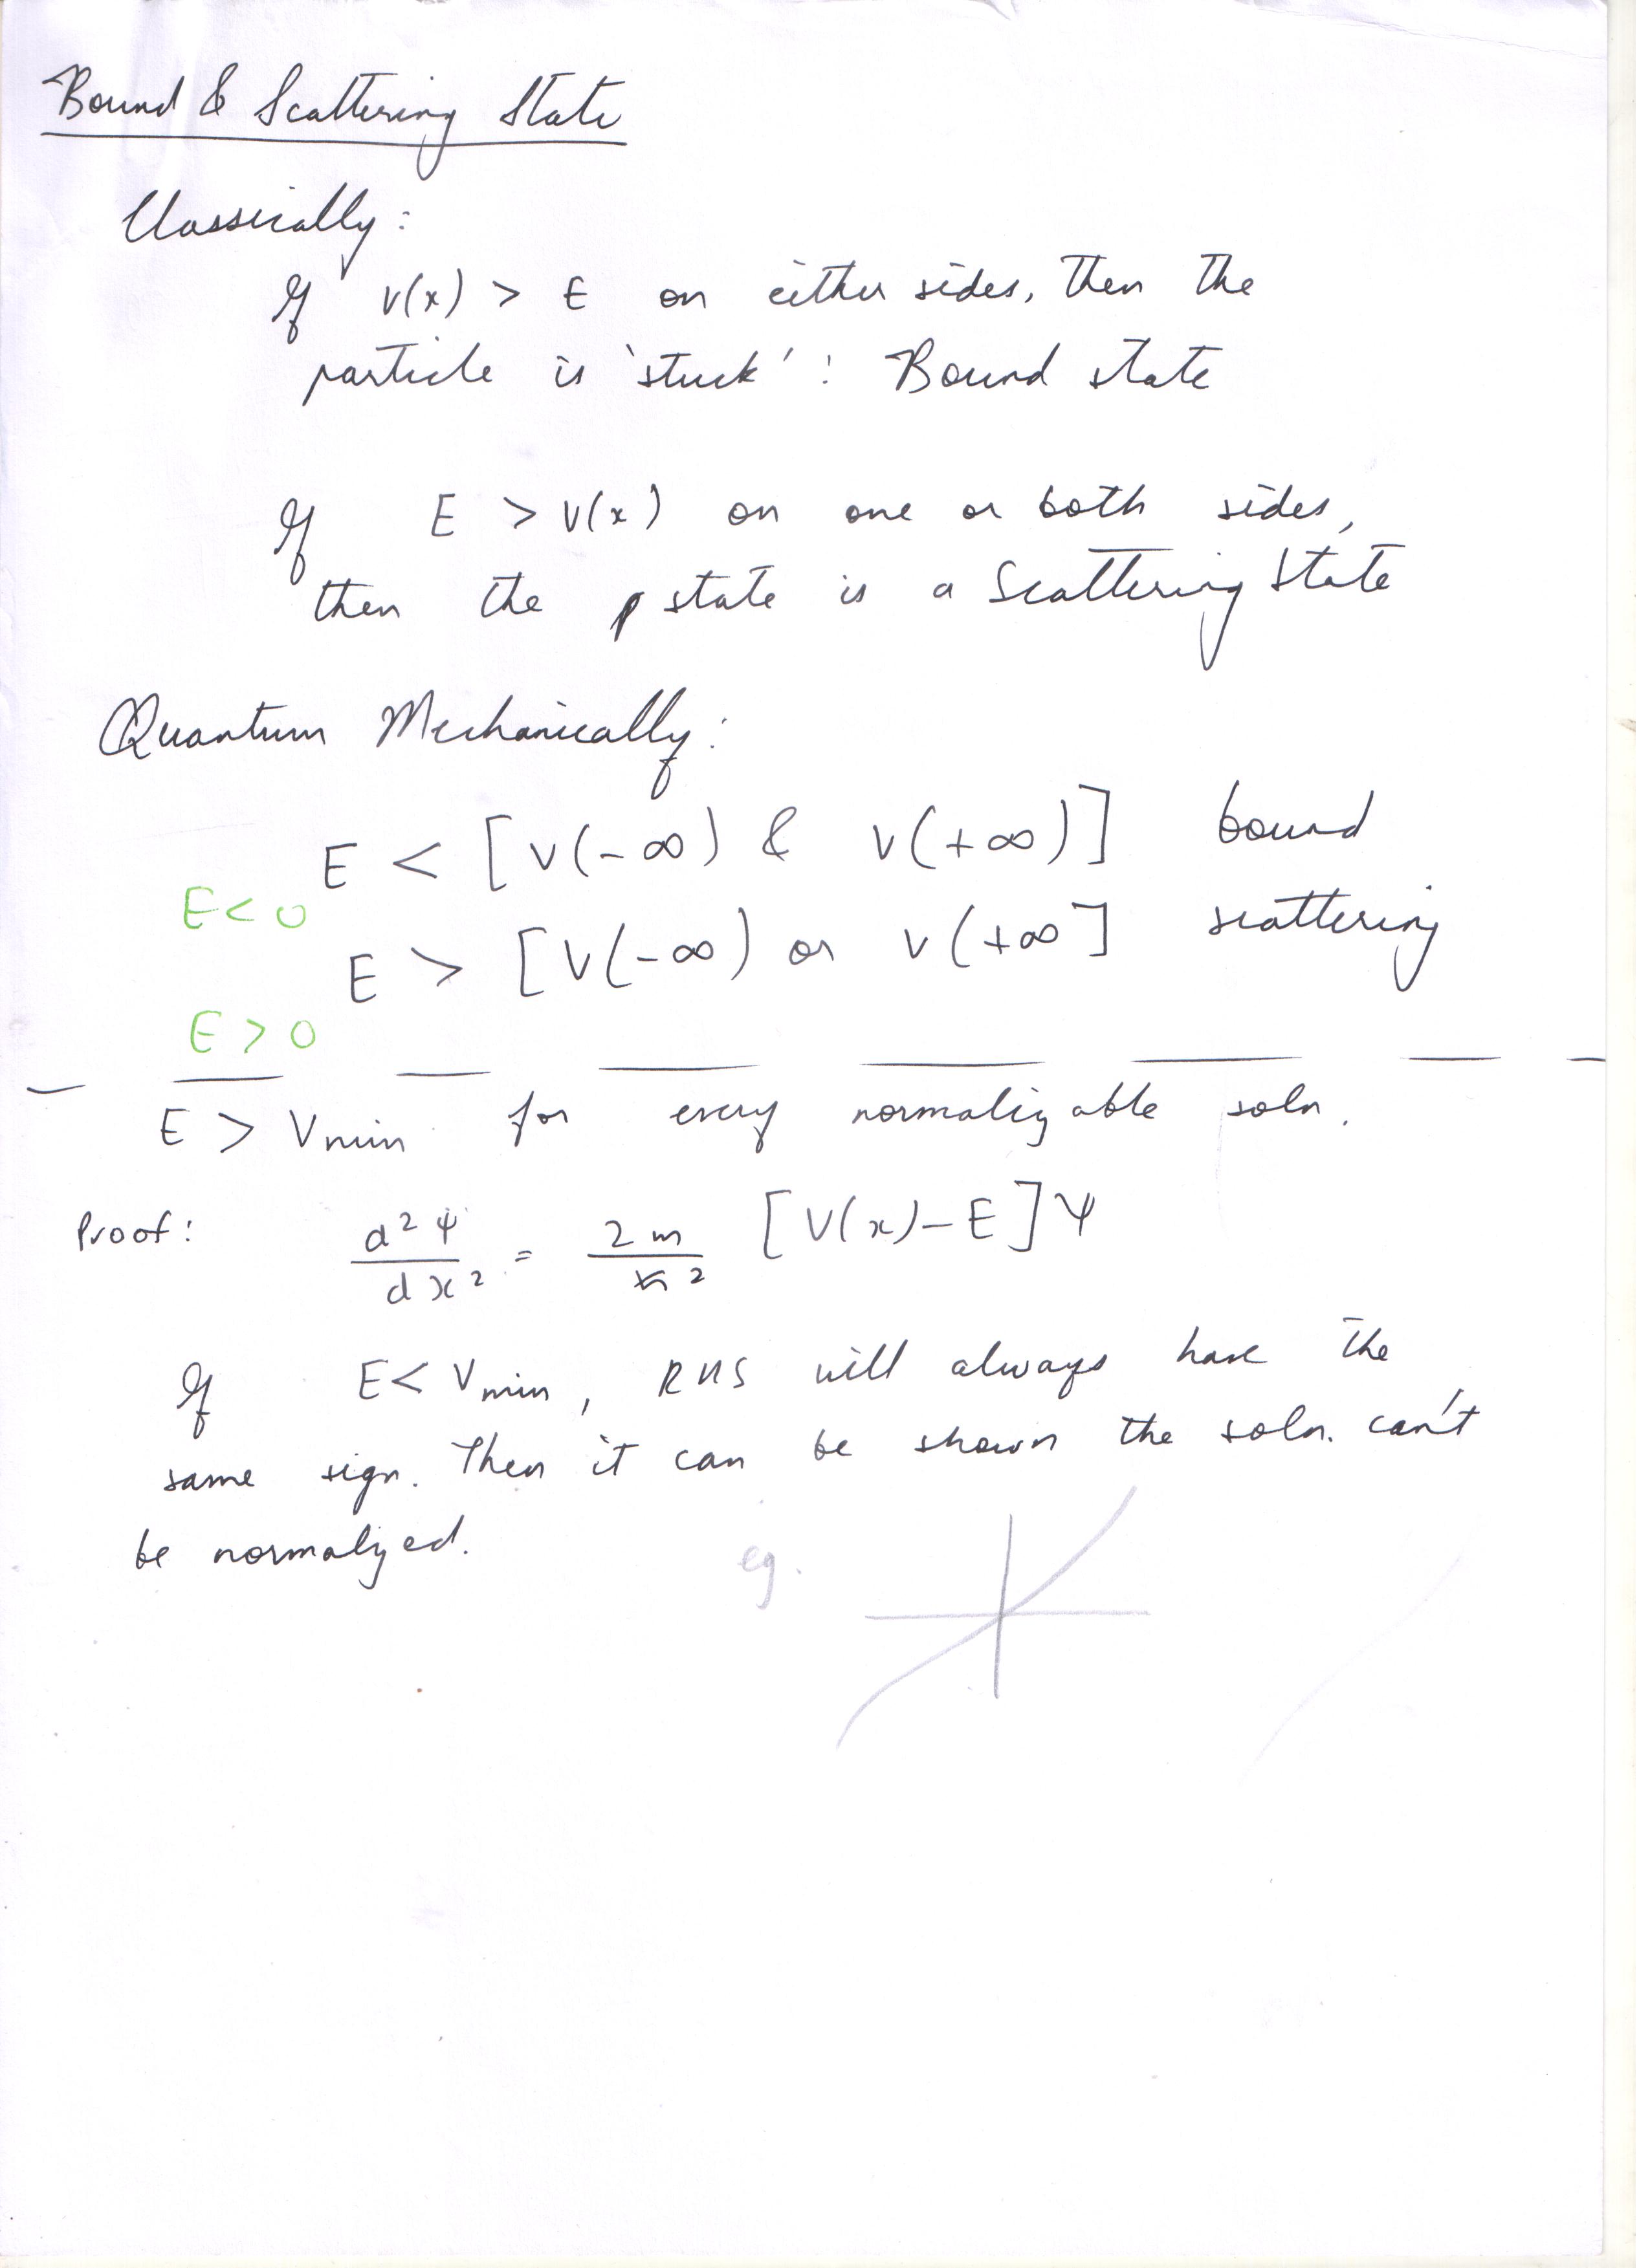 Bound & Scattering State
Classically:
If V(x) > E on either sides, then the
particle is 'stuck' : Bound state
If E > V(x) on one or both sides,
then the state is a Scattering State
Quantum Mechanically:
E < [V(-∞) & V(+∞)] bound
E < 0
E > [V(-∞) or V(+∞] scattering
E > 0
E > Vmin for every normalizable soln.
Proof: d²ψ/dx² = 2m/ħ² [V(x)-E]ψ
If E < Vmin, RHS will always have the
same sign. Then it can be shown the soln. can't
be normalized. eg.